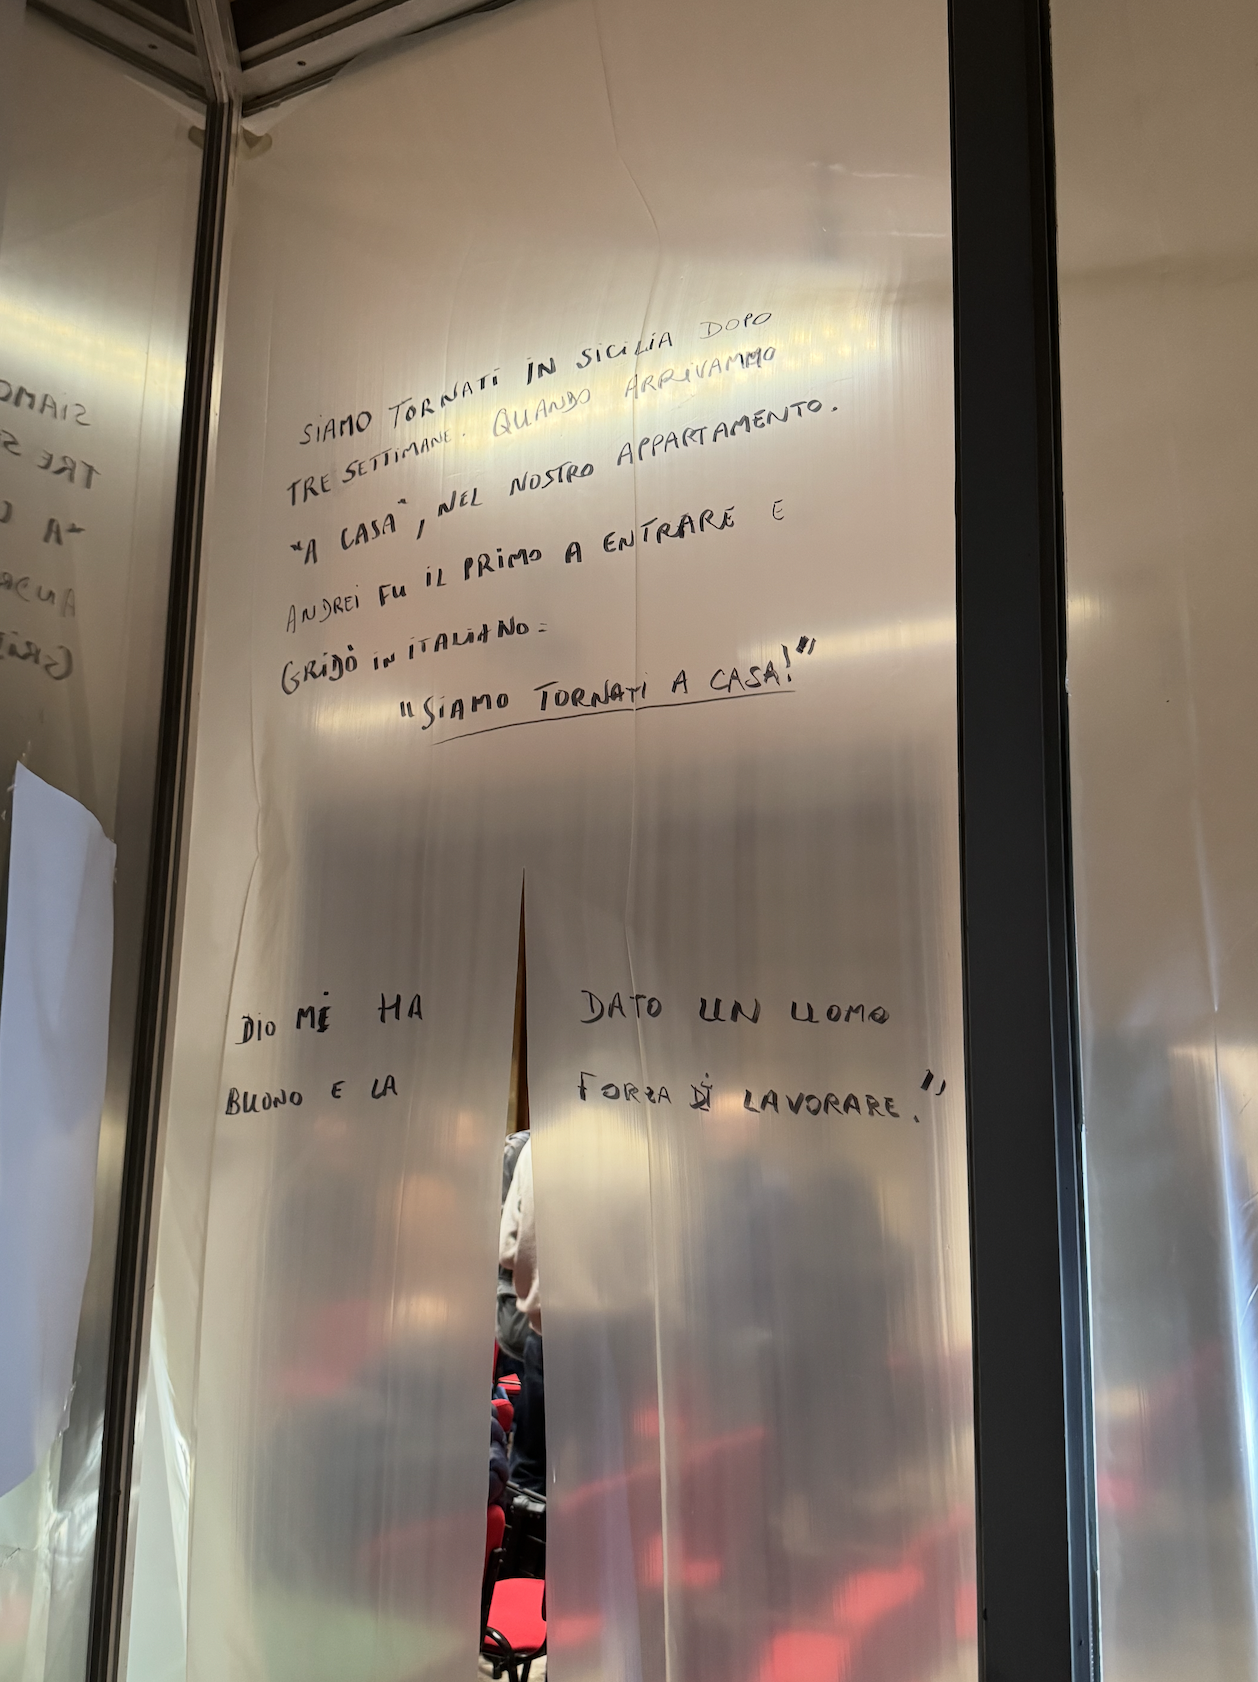 SIAMO TORNATI IN SICILIA DOPO
TRE SETTIMANE. QUANDO ARRIVAMMO
"A CASA", NEL NOSTRO APPARTAMENTO.
ANDREI FU IL PRIMO A ENTRARE E
GRIDÒ IN ITALIANO:
"SIAMO TORNATI A CASA!"
DIO MI HA DATO UN UOMO
BUONO E LA FORZA DI LAVORARE."